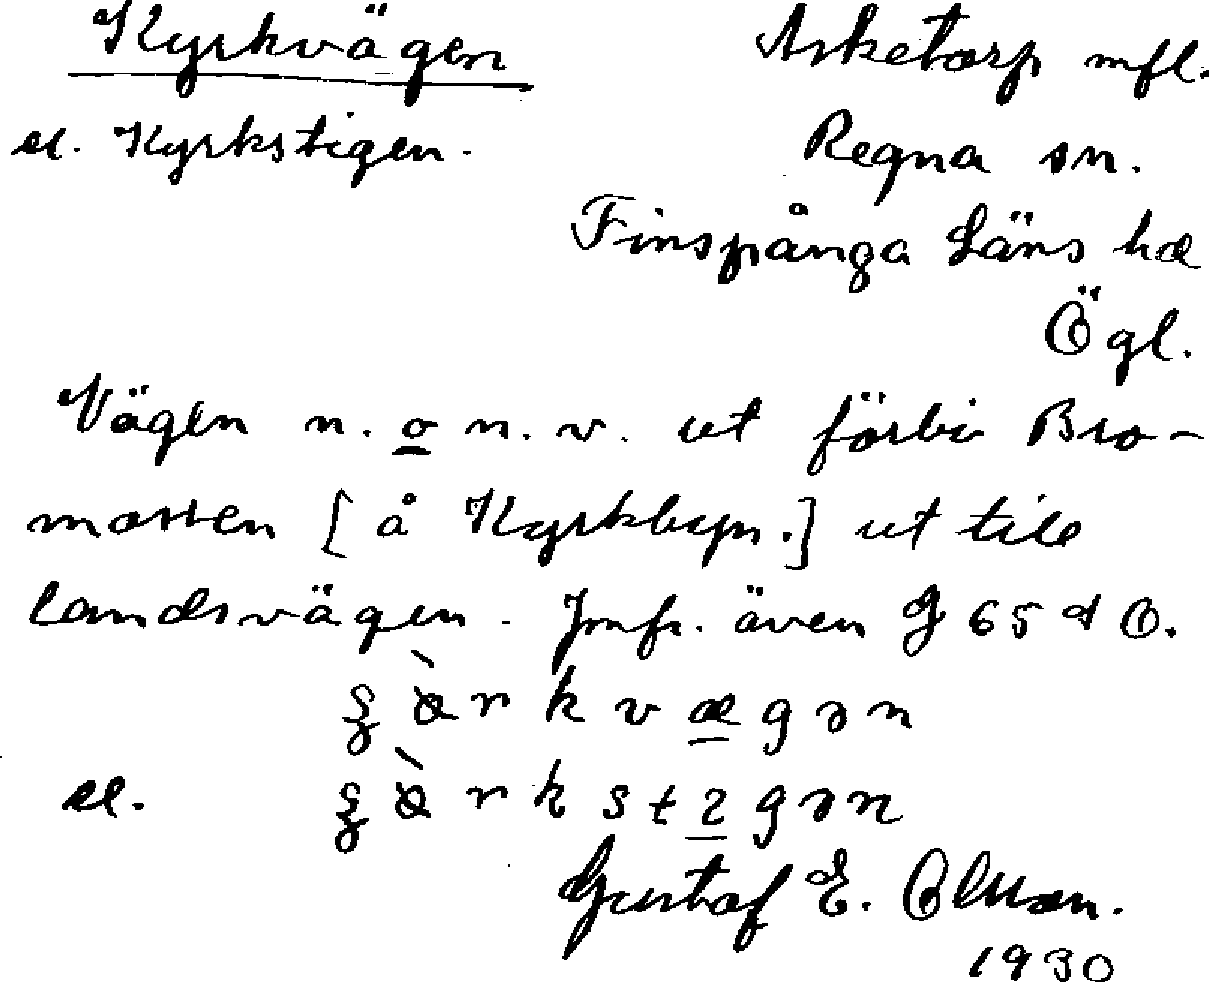 Kyrkvägen
el. Kyrkstigen.
Asketorp mfl.
Regna sn.
Finspånga Läns hd
Ögl.
Vägen n. o n. v. ut förbi Bro-
mossen [å Kyrkbyn.] ut till
landsvägen. Jmfr. även J 65 d O.
k v æ g ə n
el.
Gustaf E. Olsson.
1930